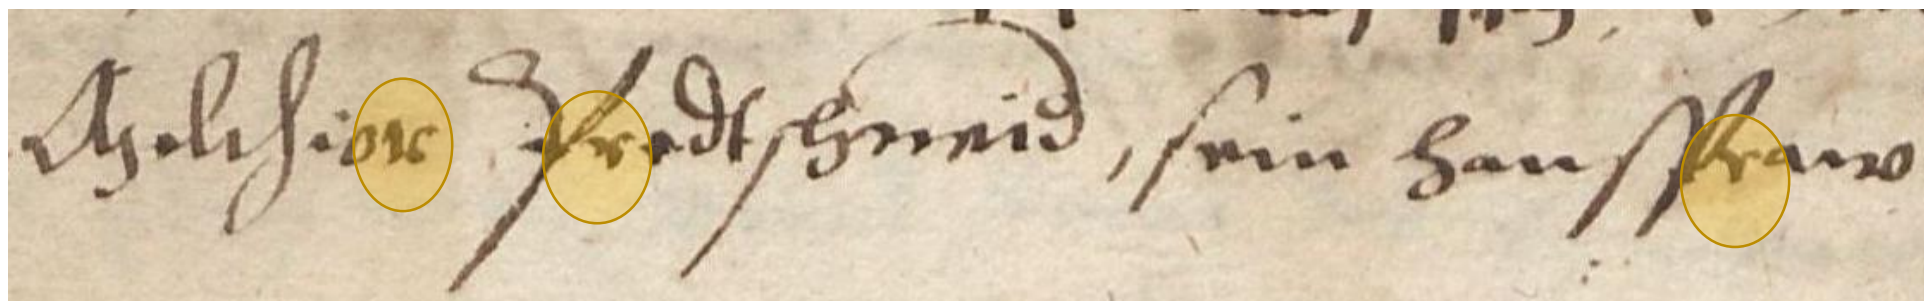 Melchior Fredtschneid, sein hausfraw